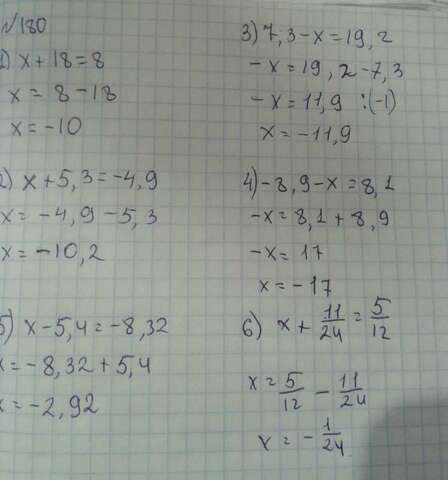 №180
1) x + 18 = 8
x = 8 - 18
x = -10
2) x + 5,3 = -4,9
x = -4,9 - 5,3
x = -10,2
5) x - 5,4 = -8,32
x = -8,32 + 5,4
x = -2,92
3) 7,3 - x = 19,2
-x = 19,2 - 7,3
-x = 11,9 :(-1)
x = -11,9
4) -8,9 - x = 8,1
-x = 8,1 + 8,9
-x = 17
x = -17
6) x + 11/24 = 5/12
x = 5/12 - 11/24
x = -1/24